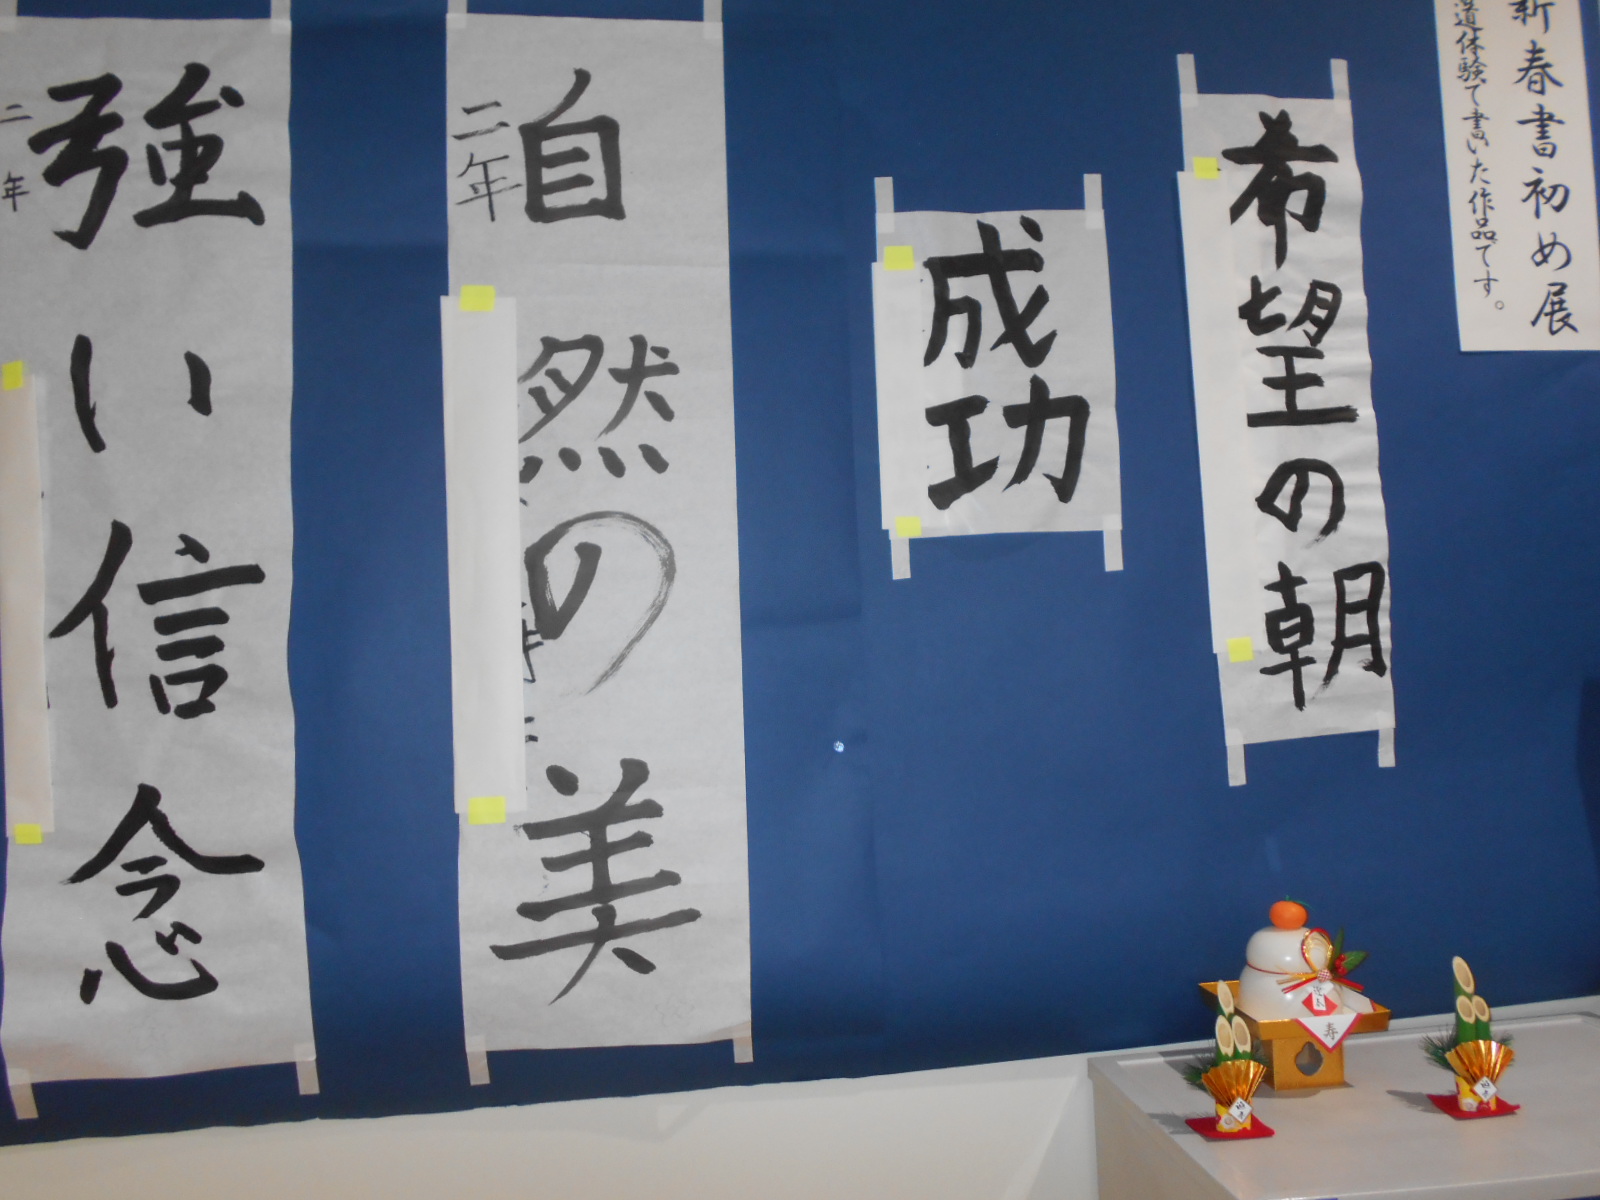 新春書初め展
道体験で書いた作品です。
希望の朝
成功
自然の美
二年
強い信念
二年
寿